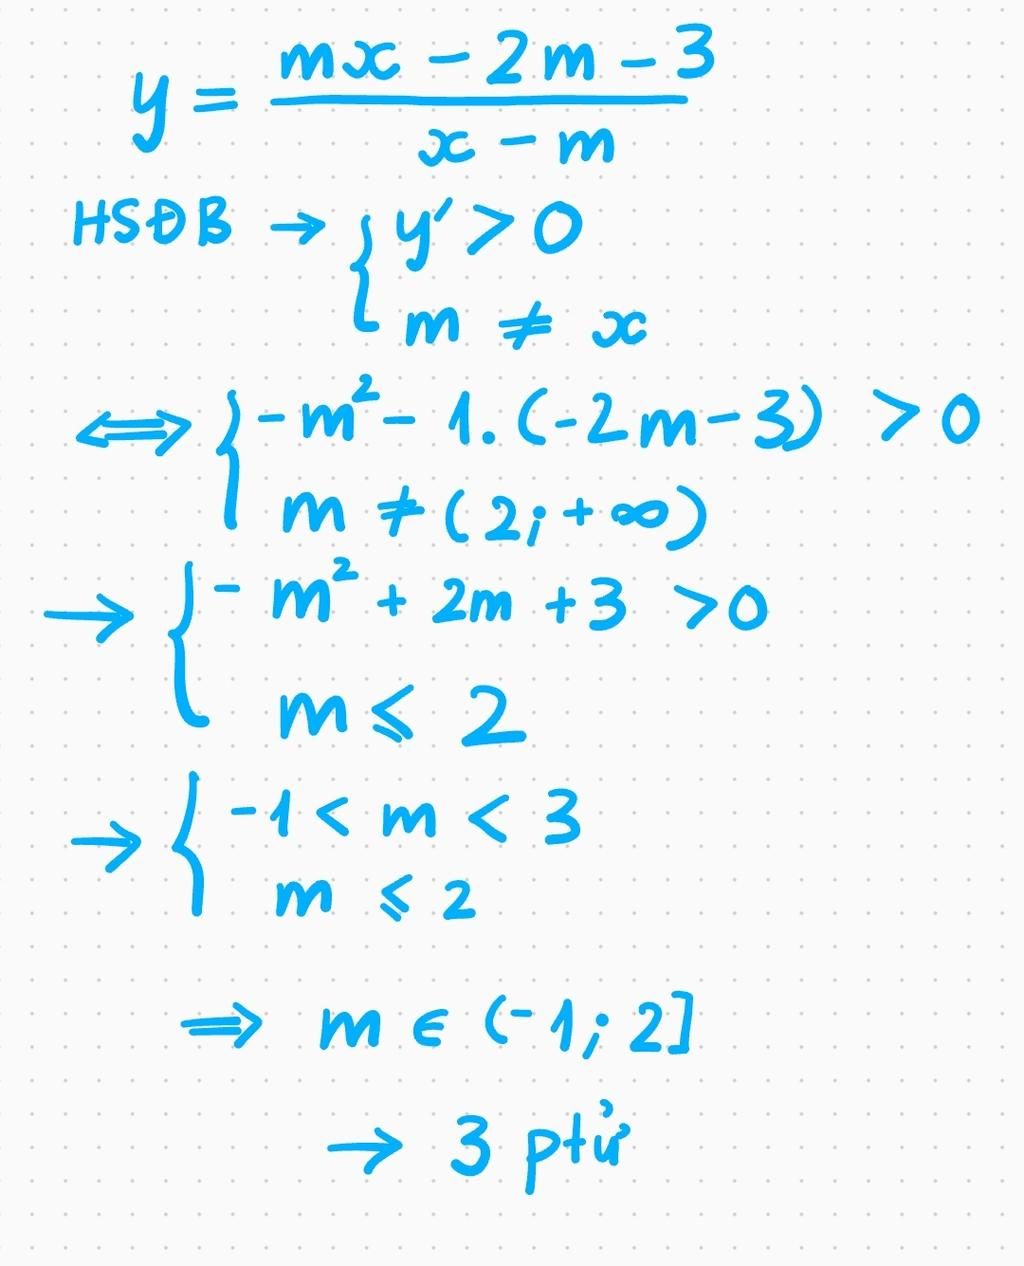 y = \frac{mx - 2m - 3}{x - m}
HSĐB → { y' > 0
m ≠ x
⟺ { -m² - 1.(-2m - 3) > 0
m ≠ (2; +∞)
→ { - m² + 2m + 3 > 0
m ⩽ 2
→ { -1 < m < 3
m ⩽ 2
⇒ m ∈ (-1; 2]
→ 3 ptử